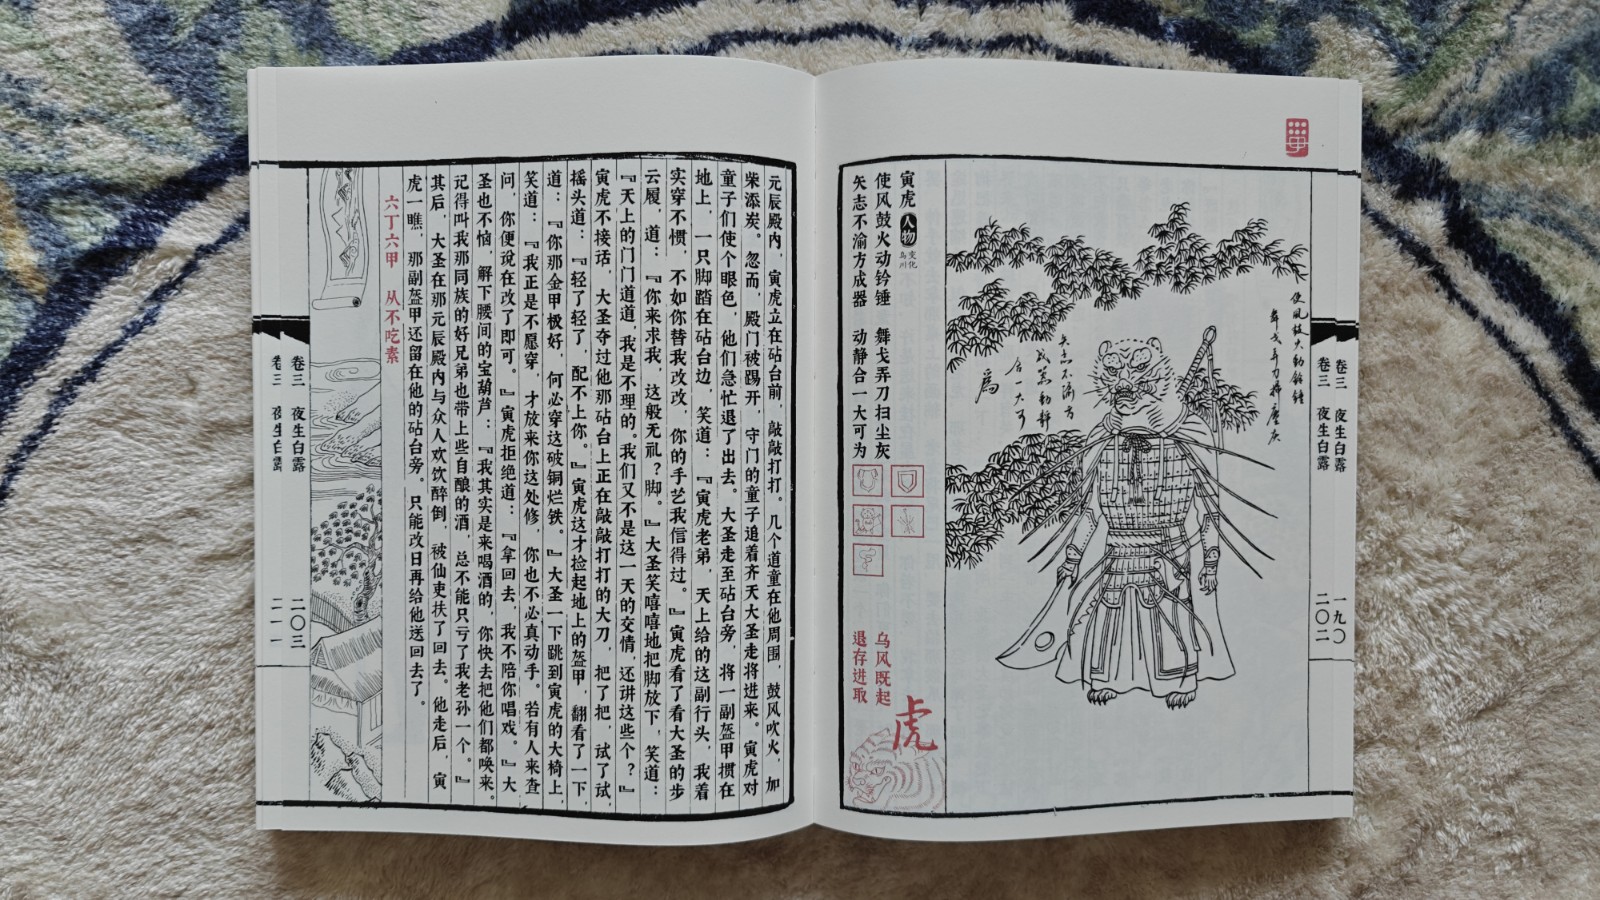 卷三　夜生白露
一九〇
卷三　夜生白露
二〇二
使风鼓火动铃锤
舞戈弄刀扫尘灰
矢志不渝方
成器动静
合一大可
为
寅虎 人物 变化
使风鼓火动钤锤　舞戈弄刀扫尘灰
矢志不渝方成器　动静合一大可为
乌风既起
退存进取
虎
元辰殿内，寅虎立在砧台前，敲敲打打。几个道童在他周围，鼓风吹火，加
柴添炭。忽而，殿门被踢开，守门的童子追着齐天大圣走将进来。寅虎对
童子们使个眼色，他们急忙退了出去。大圣走至砧台旁，将一副盔甲掼在
地上，一只脚踏在砧台边，笑道：『寅虎老弟，天上给的这副行头，我着
实穿不惯，不如你替我改改，你的手艺我信得过。』寅虎看了看大圣的步
云履，道：『你来求我，这般无礼？脚。』大圣笑嘻嘻地把脚放下，笑道：
『天上的门门道道，我是不理的。我们又不是这一天的交情，还讲这些个？』
寅虎不接话，大圣夺过他那砧台上正在敲敲打打的大刀，把了把，试了试，
摇头道：『轻了轻了，配不上你。』寅虎这才捡起地上的盔甲，翻看了一下，
道：『你那金甲极好，何必穿这破铜烂铁。』大圣一下跳到寅虎的大椅上，
笑道：『我正是不愿穿，才放来你这处修，你也不必真动手。若有人来查
问，你便说在改了即可。』寅虎拒绝道：『拿回去，我不陪你唱戏。』大
圣也不恼，解下腰间的宝葫芦：『我其实是来喝酒的，你快去把他们都唤来。
记得叫我那同族的好兄弟也带上些自酿的酒，总不能只亏了我老孙一个。』
其后，大圣在那元辰殿内与众人欢饮醉倒，被仙吏扶了回去。他走后，寅
虎一瞧，那副盔甲还留在他的砧台旁。只能改日再给他送回去了。
六丁六甲　从不吃素
卷三　夜生白露
二〇三
卷三　夜生白露